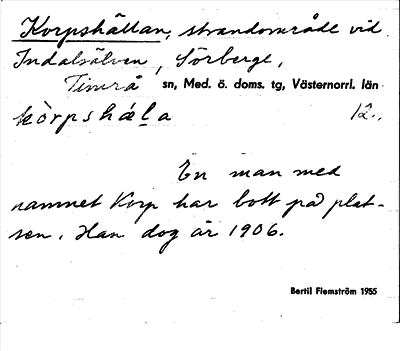 Korpshällan, strandområde vid
Indalsälven, Sörberge,
Timrå sn, Med. ö. doms. tg, Västernorrl. län
kòrpshæḷa 12..
En man med
namnet Korp har bott på plat-
sen. Han dog år 1906.
Bertil Flemström 1955